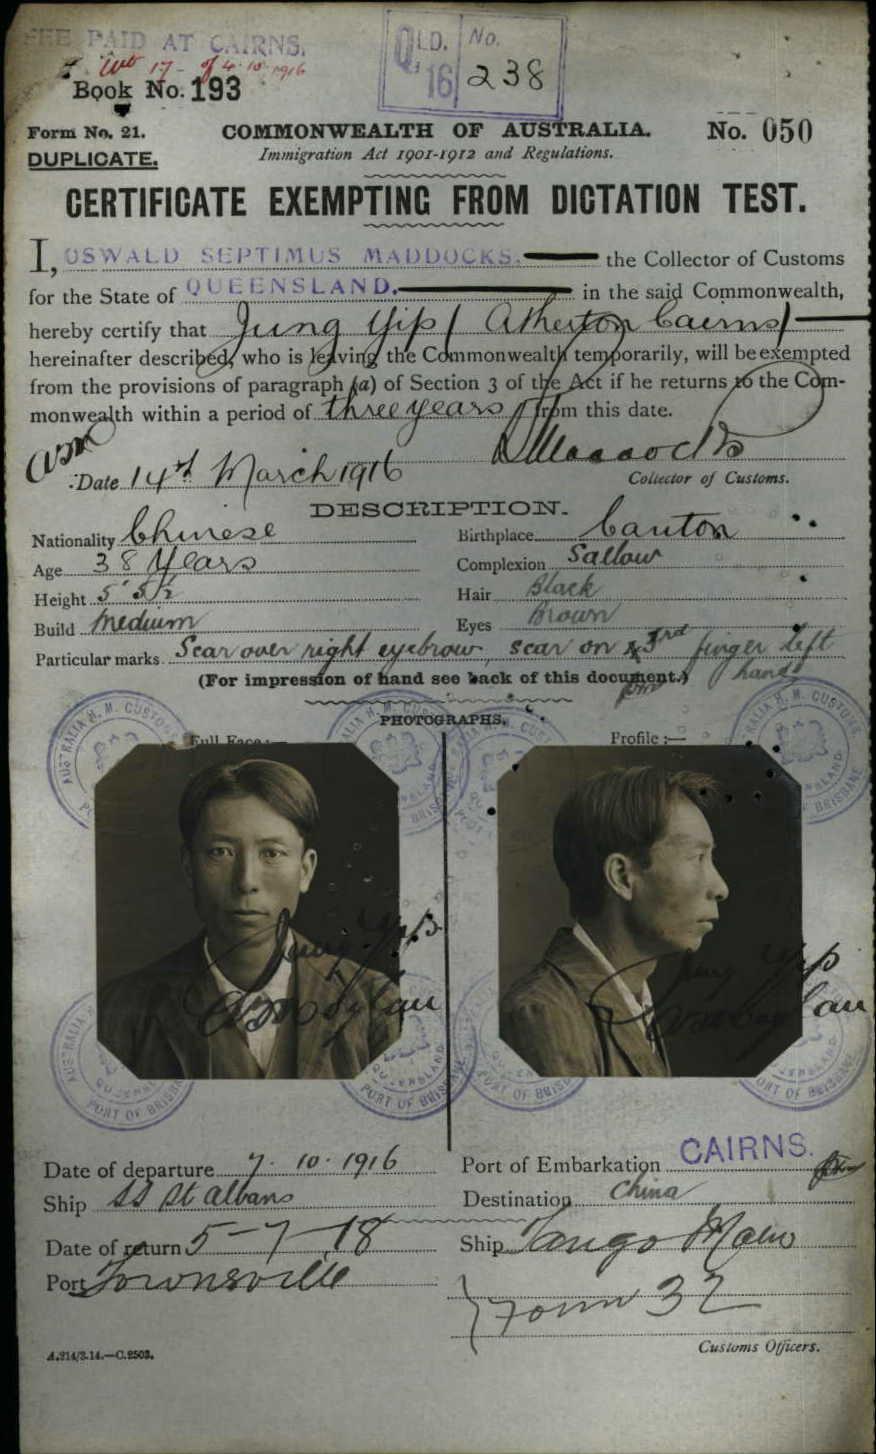 FEE PAID AT CAIRNS.
17 of 4.10.1916
Book No. 193
QLD. No.
16 238
Form No. 21.
COMMONWEALTH OF AUSTRALIA.
No. 050
DUPLICATE.
Immigration Act 1901-1912 and Regulations.
CERTIFICATE EXEMPTING FROM DICTATION TEST.
I, OSWALD SEPTIMUS MADDOCKS. the Collector of Customs
for the State of QUEENSLAND. in the said Commonwealth,
hereby certify that Jung Yip (Atherton Cairns)
hereinafter described, who is leaving the Commonwealth temporarily, will be exempted
from the provisions of paragraph (a) of Section 3 of the Act if he returns to the Com-
monwealth within a period of three years from this date.
Maddocks
Date 14th March 1916
Collector of Customs.
DESCRIPTION.
Nationality Chinese
Birthplace Canton
Age 38 Years
Complexion Sallow
Height 5' 5½
Hair Black
Build Medium
Eyes Brown
Particular marks Scar over right eyebrow, scar on 3rd finger left
hand
(For impression of hand see back of this document.)
PHOTOGRAPHS.
Full Face:—
Profile:—
AUSTRALIA H. M. CUSTOMS
QUEENSLAND
PORT OF BRISBANE
Jung Yip
Jung Yip
Date of departure 7.10.1916
Port of Embarkation CAIRNS.
Ship SS St Albans
Destination China
Date of return 5-7-18
Ship Tango Maru
Port Townsville
Form 32
Customs Officers.
A.214/3.14.—C.2503.